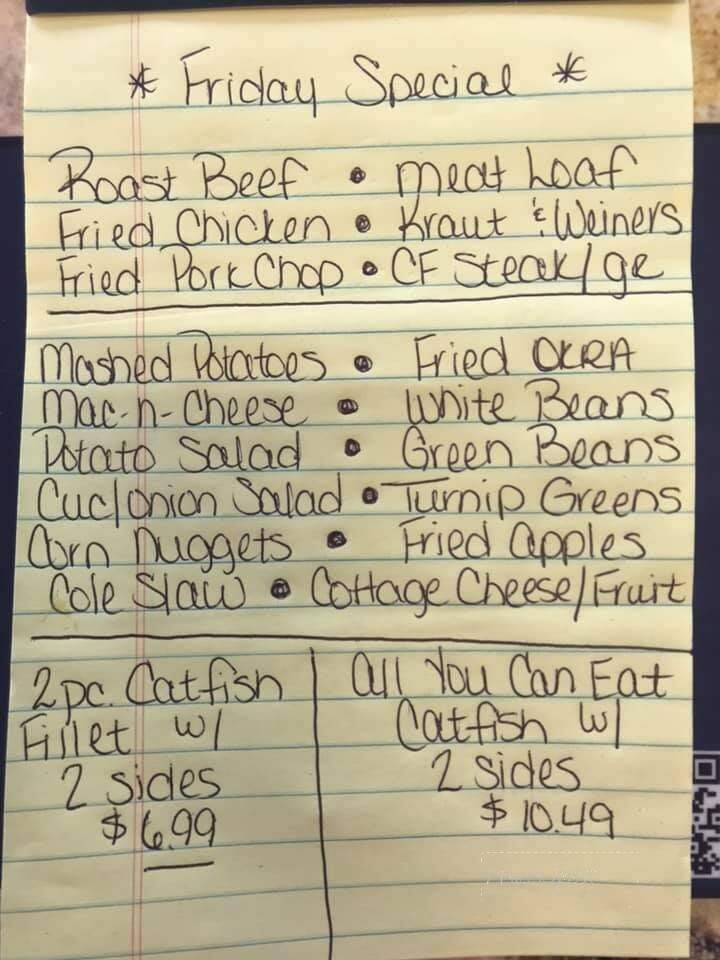 * Friday Special *
Roast Beef • Meat Loaf
Fried Chicken • Kraut & Weiners
Fried Pork Chop • CF Steak/ge
Mashed Potatoes • Fried OKRA
Mac-n-Cheese • White Beans
Potato Salad • Green Beans
Cuc/onion Salad • Turnip Greens
Corn Nuggets • Fried Apples
Cole Slaw • Cottage Cheese/Fruit
2pc. Catfish
Fillet w/
2 sides
$6.99
All You Can Eat
Catfish w/
2 sides
$10.49